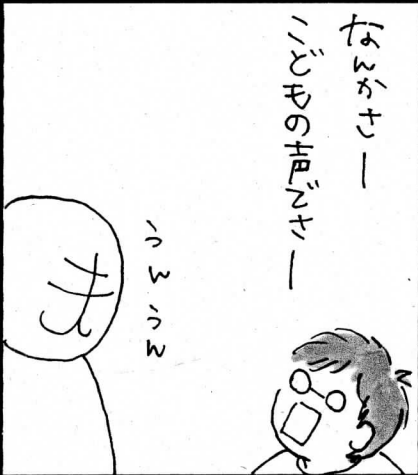 なんかさー
こどもの声でさー
うんうん
ま